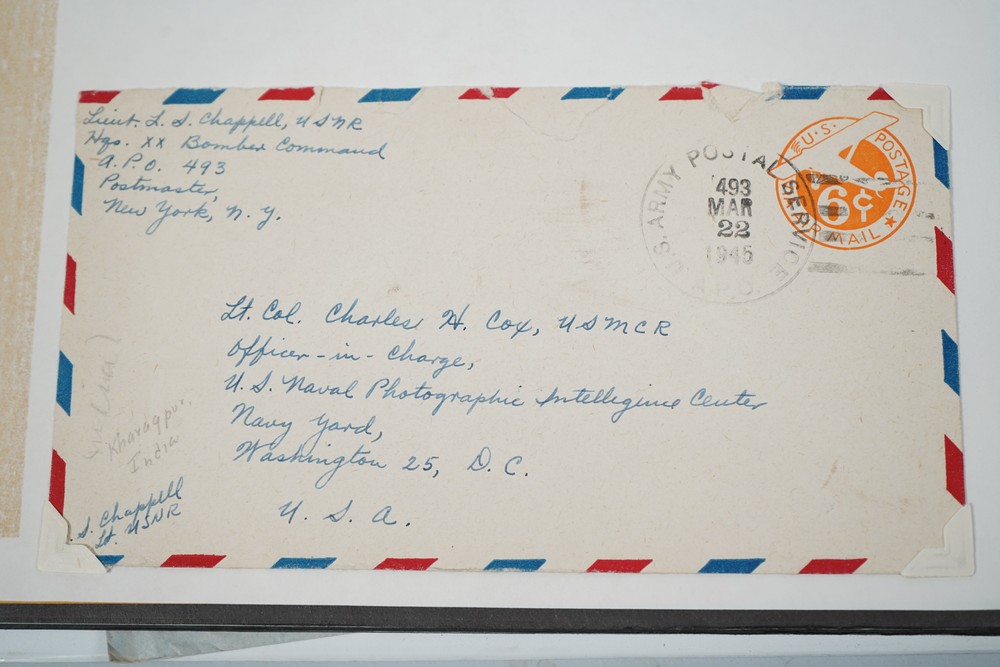 Lieut. L. S. Chappell, USNR
Hqs. XX Bomber Command
A.P.O. 493
Postmaster,
New York, N.Y.
U.S. ARMY POSTAL SERVICE
493
MAR
22
1945
A.P.O.
U.S. POSTAGE
6¢
AIR MAIL
Lt. Col. Charles H. Cox, USMCR
Officer-in-Charge,
U.S. Naval Photographic Intelligence Center
Navy Yard,
Washington 25, D.C.
U.S.A.
Kharagpur,
India
S. Chappell
Lt. USNR